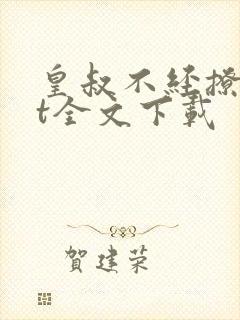 皇叔不经撩
t全文下载
賀建荣